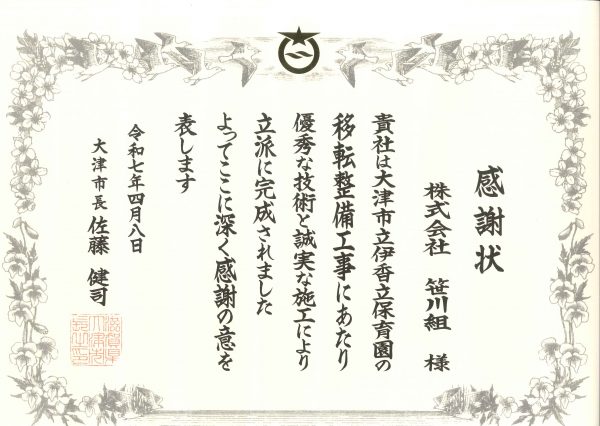 感謝状
株式会社 笹川組 様
貴社は大津市立伊香立保育園の
移転整備工事にあたり
優秀な技術と誠実な施工により
立派に完成されました
よってここに深く感謝の意を
表します
令和七年四月八日
大津市長 佐藤 健司